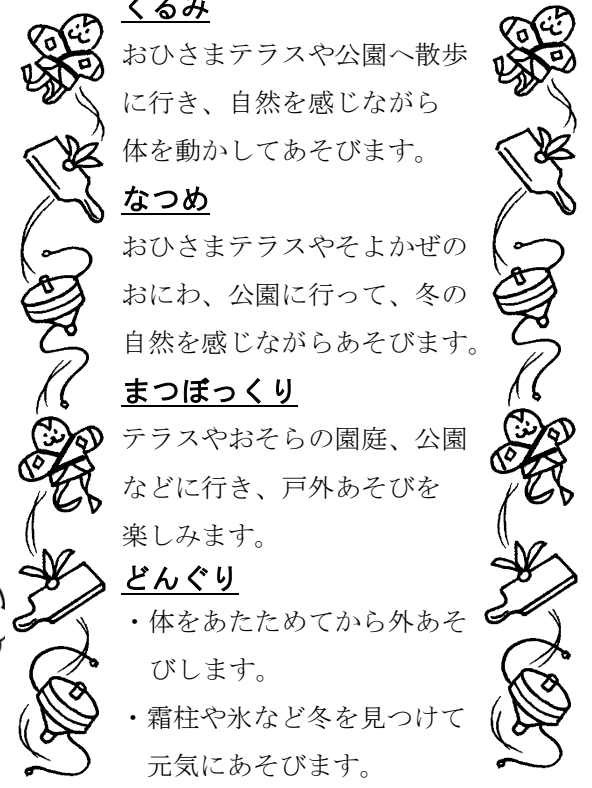 くるみ
おひさまテラスや公園へ散歩
に行き、自然を感じながら
体を動かしてあそびます。
なつめ
おひさまテラスやそよかぜの
おにわ、公園に行って、冬の
自然を感じながらあそびます。
まつぼっくり
テラスやおそらの園庭、公園
などに行き、戸外あそびを
楽しみます。
どんぐり
・体をあたためてから外あそ
びします。
・霜柱や氷など冬を見つけて
元気にあそびます。